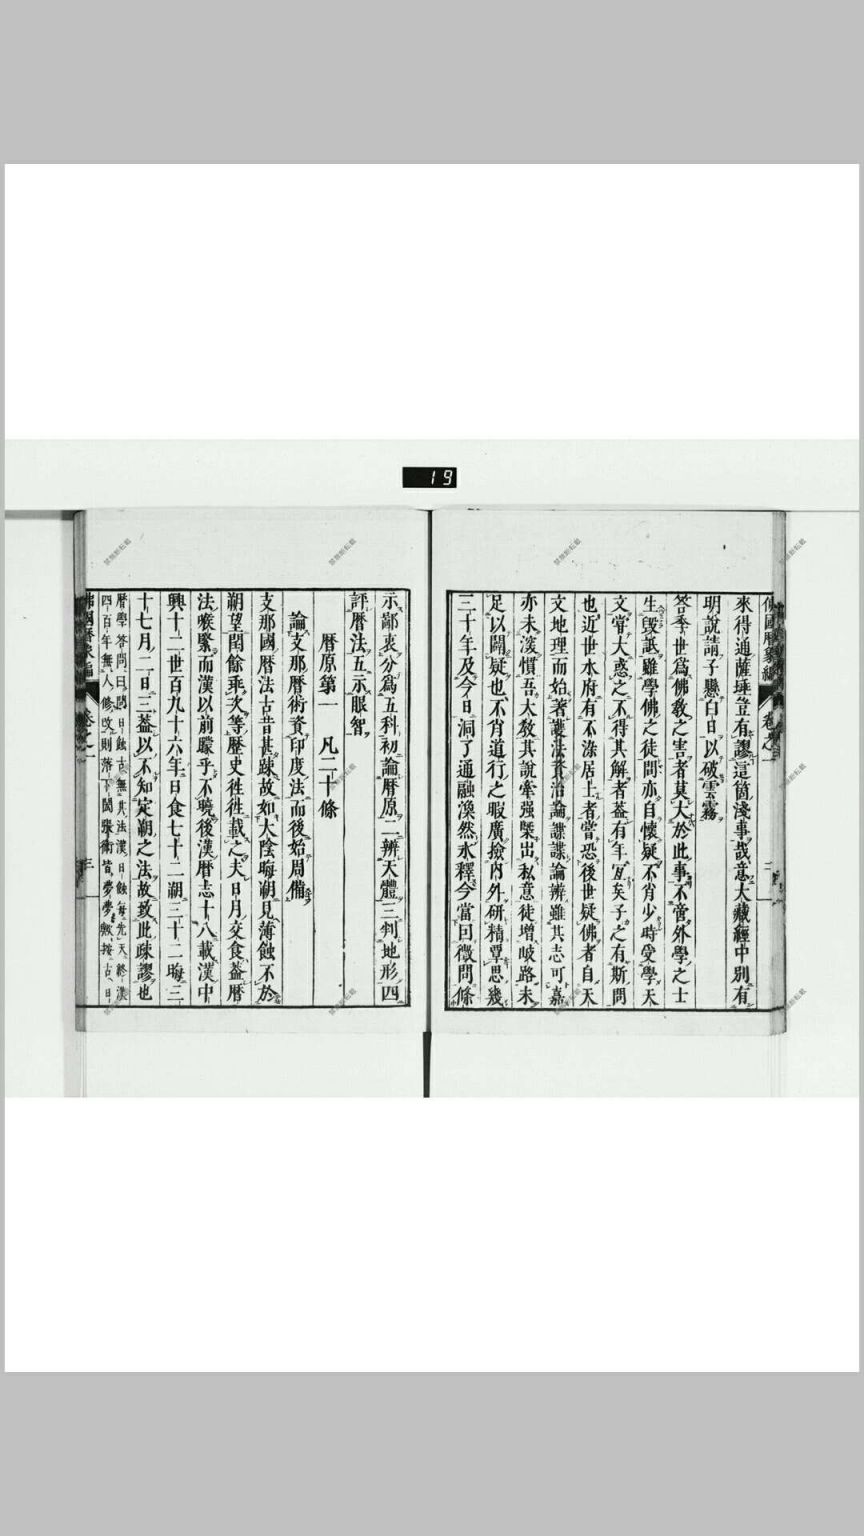 19
佛國曆象編 卷之一 二
來得通薩埵豈有謬這箇淺事哉意大藏經中別有
明說請子懸白日以破雲霧
答季世爲佛敎之害者莫大於此事不啻外學之士
生毀詆雖學佛之徒間亦自懷疑不肖少時受學天
文嘗大惑之不得其解者蓋有年冝矣子之有斯問
也近世水府有不染居士者嘗恐後世疑佛者自天
文地理而始著護法資治論諜諜論辨雖其志可嘉
亦未深慣吾大敎其說牽强槩出私意徒增岐路未
足以闢疑也不肖道行之暇廣撿内外研精覃思幾
三十年及今日洞了通融渙然氷釋今當囙徵問條
示鄙衷分爲五科初論曆原二辨天體三判地形四
評曆法五示眼智
曆原第一 凡二十條
論支那曆術資印度法而後始周備
支那國曆法古昔甚踈故如大陰晦朔見薄蝕不於
朔望閏餘乖次等歷史徃徃載之夫日月交食蓋曆
法喉緊而漢以前矇乎不曉後漢曆志十八載漢中
興十二世百九十六年日食七十二朔三十二晦三
十七月二日三蓋以不知定朔之法故致此疎謬也
曆學答問曰問日蝕古無其法漢日蝕每先天終漢
四百年無人修改則落下閎張衡皆夢夢歟按古日
佛國曆象編 卷之一 三